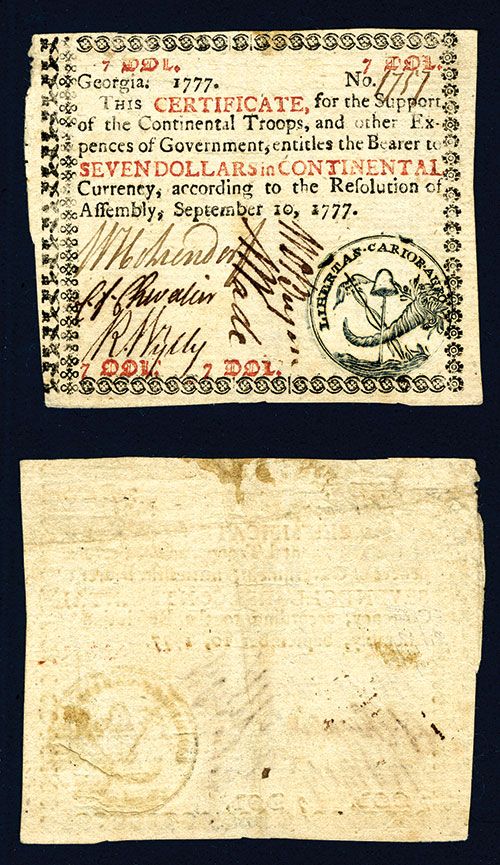 7 DOL. 7 DOL.
Georgia. 1777. No. 1757
THIS CERTIFICATE, for the Support
of the Continental Troops, and other Ex-
pences of Government, entitles the Bearer to
SEVEN DOLLARS in CONTINENTAL
Currency, according to the Resolution of
Assembly, September 10, 1777.
LIBERTAS CARIOR
R. Wylly
7 DOL. 7 DOL.